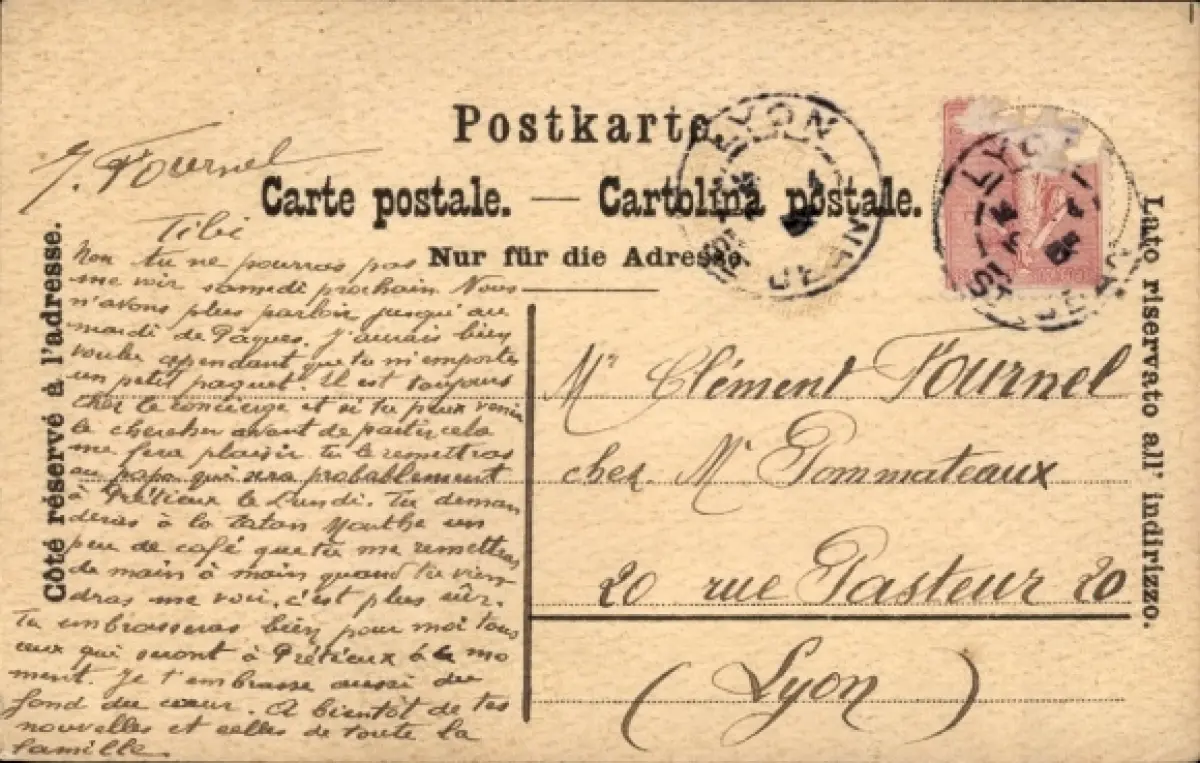 Postkarte
Carte postale. — Cartolina postale.
Nur für die Adresse.
Côté réservé à l'adresse.
Lato riservato all' indirizzo.
LYON
ST JEAN
LYON
ST JEAN
J. Fournel
Tibi
Non tu ne pourras pas
me voir samedi prochain. Nous
n'avons plus parloir jusqu'au
mardi de Pâques. J'aurais bien
voulu cependant que tu m'emportes
un petit paquet. Il est toujours
chez le concierge et si tu peux venir
le chercher avant de partir cela
me fera plaisir tu le remettras
au papa qui sera probablement
à Prétieux le Lundi. Tu deman
deras à la tatan Mouthe un
peu de café que tu me remettras
de main à main quand tu vien
dras me voir, c'est plus sûr.
Tu embrasseras bien pour moi tous
ceux qui seront à Prétieux à ce mo
ment. Je t'embrasse aussi du
fond du cœur. A bientôt de tes
nouvelles et celles de toute la
famille.
Mr Clément Fournel
chez Mr Pommateaux
20 rue Pasteur 20
(Lyon)